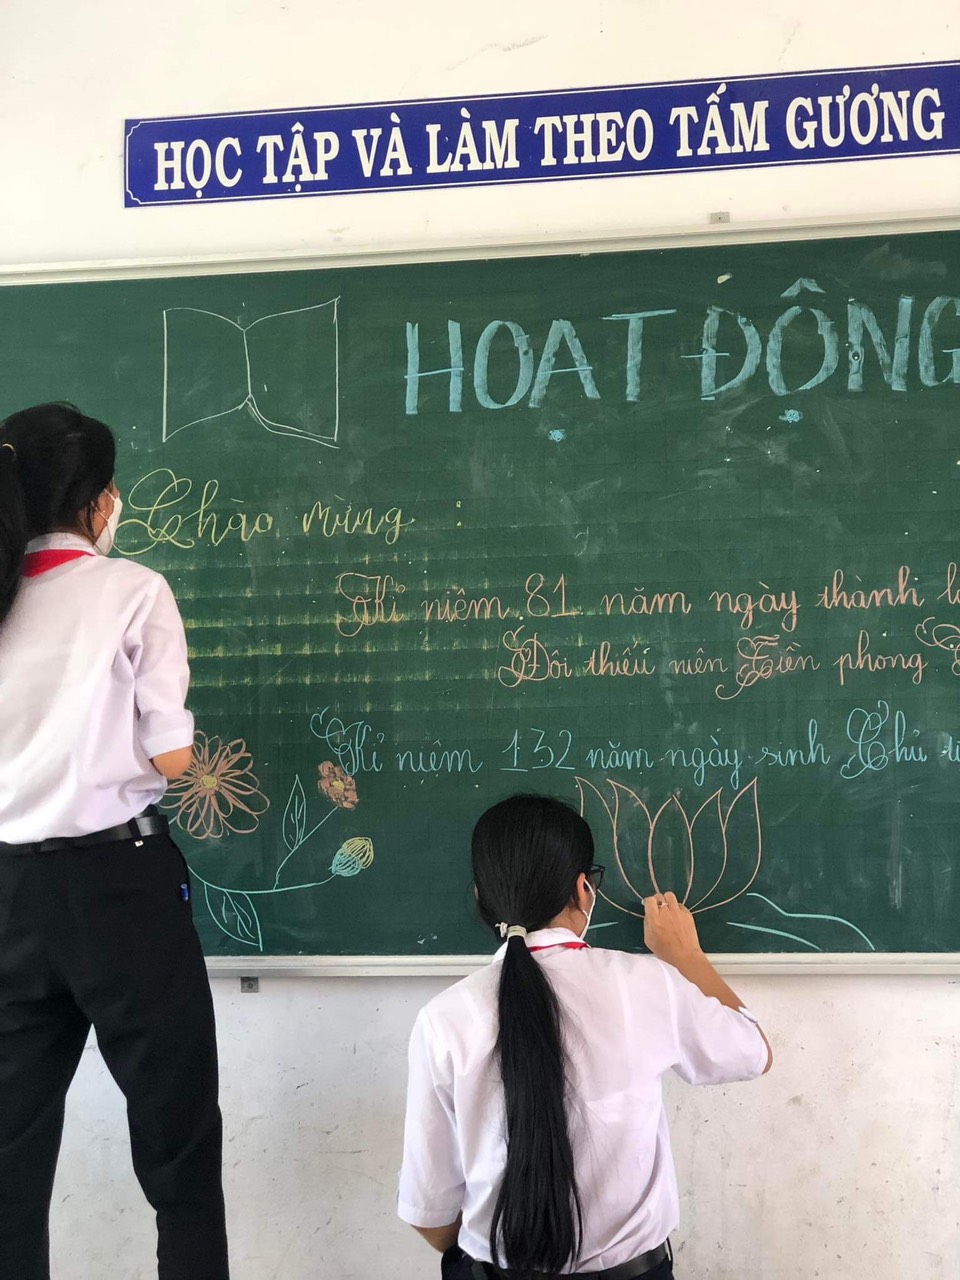 HỌC TẬP VÀ LÀM THEO TẤM GƯƠNG
HOẠT ĐỘNG
Chào mừng :
Kỉ niệm 81 năm ngày thành
Đội thiếu niên Tiền phong
Kỉ niệm 132 năm ngày sinh Chủ